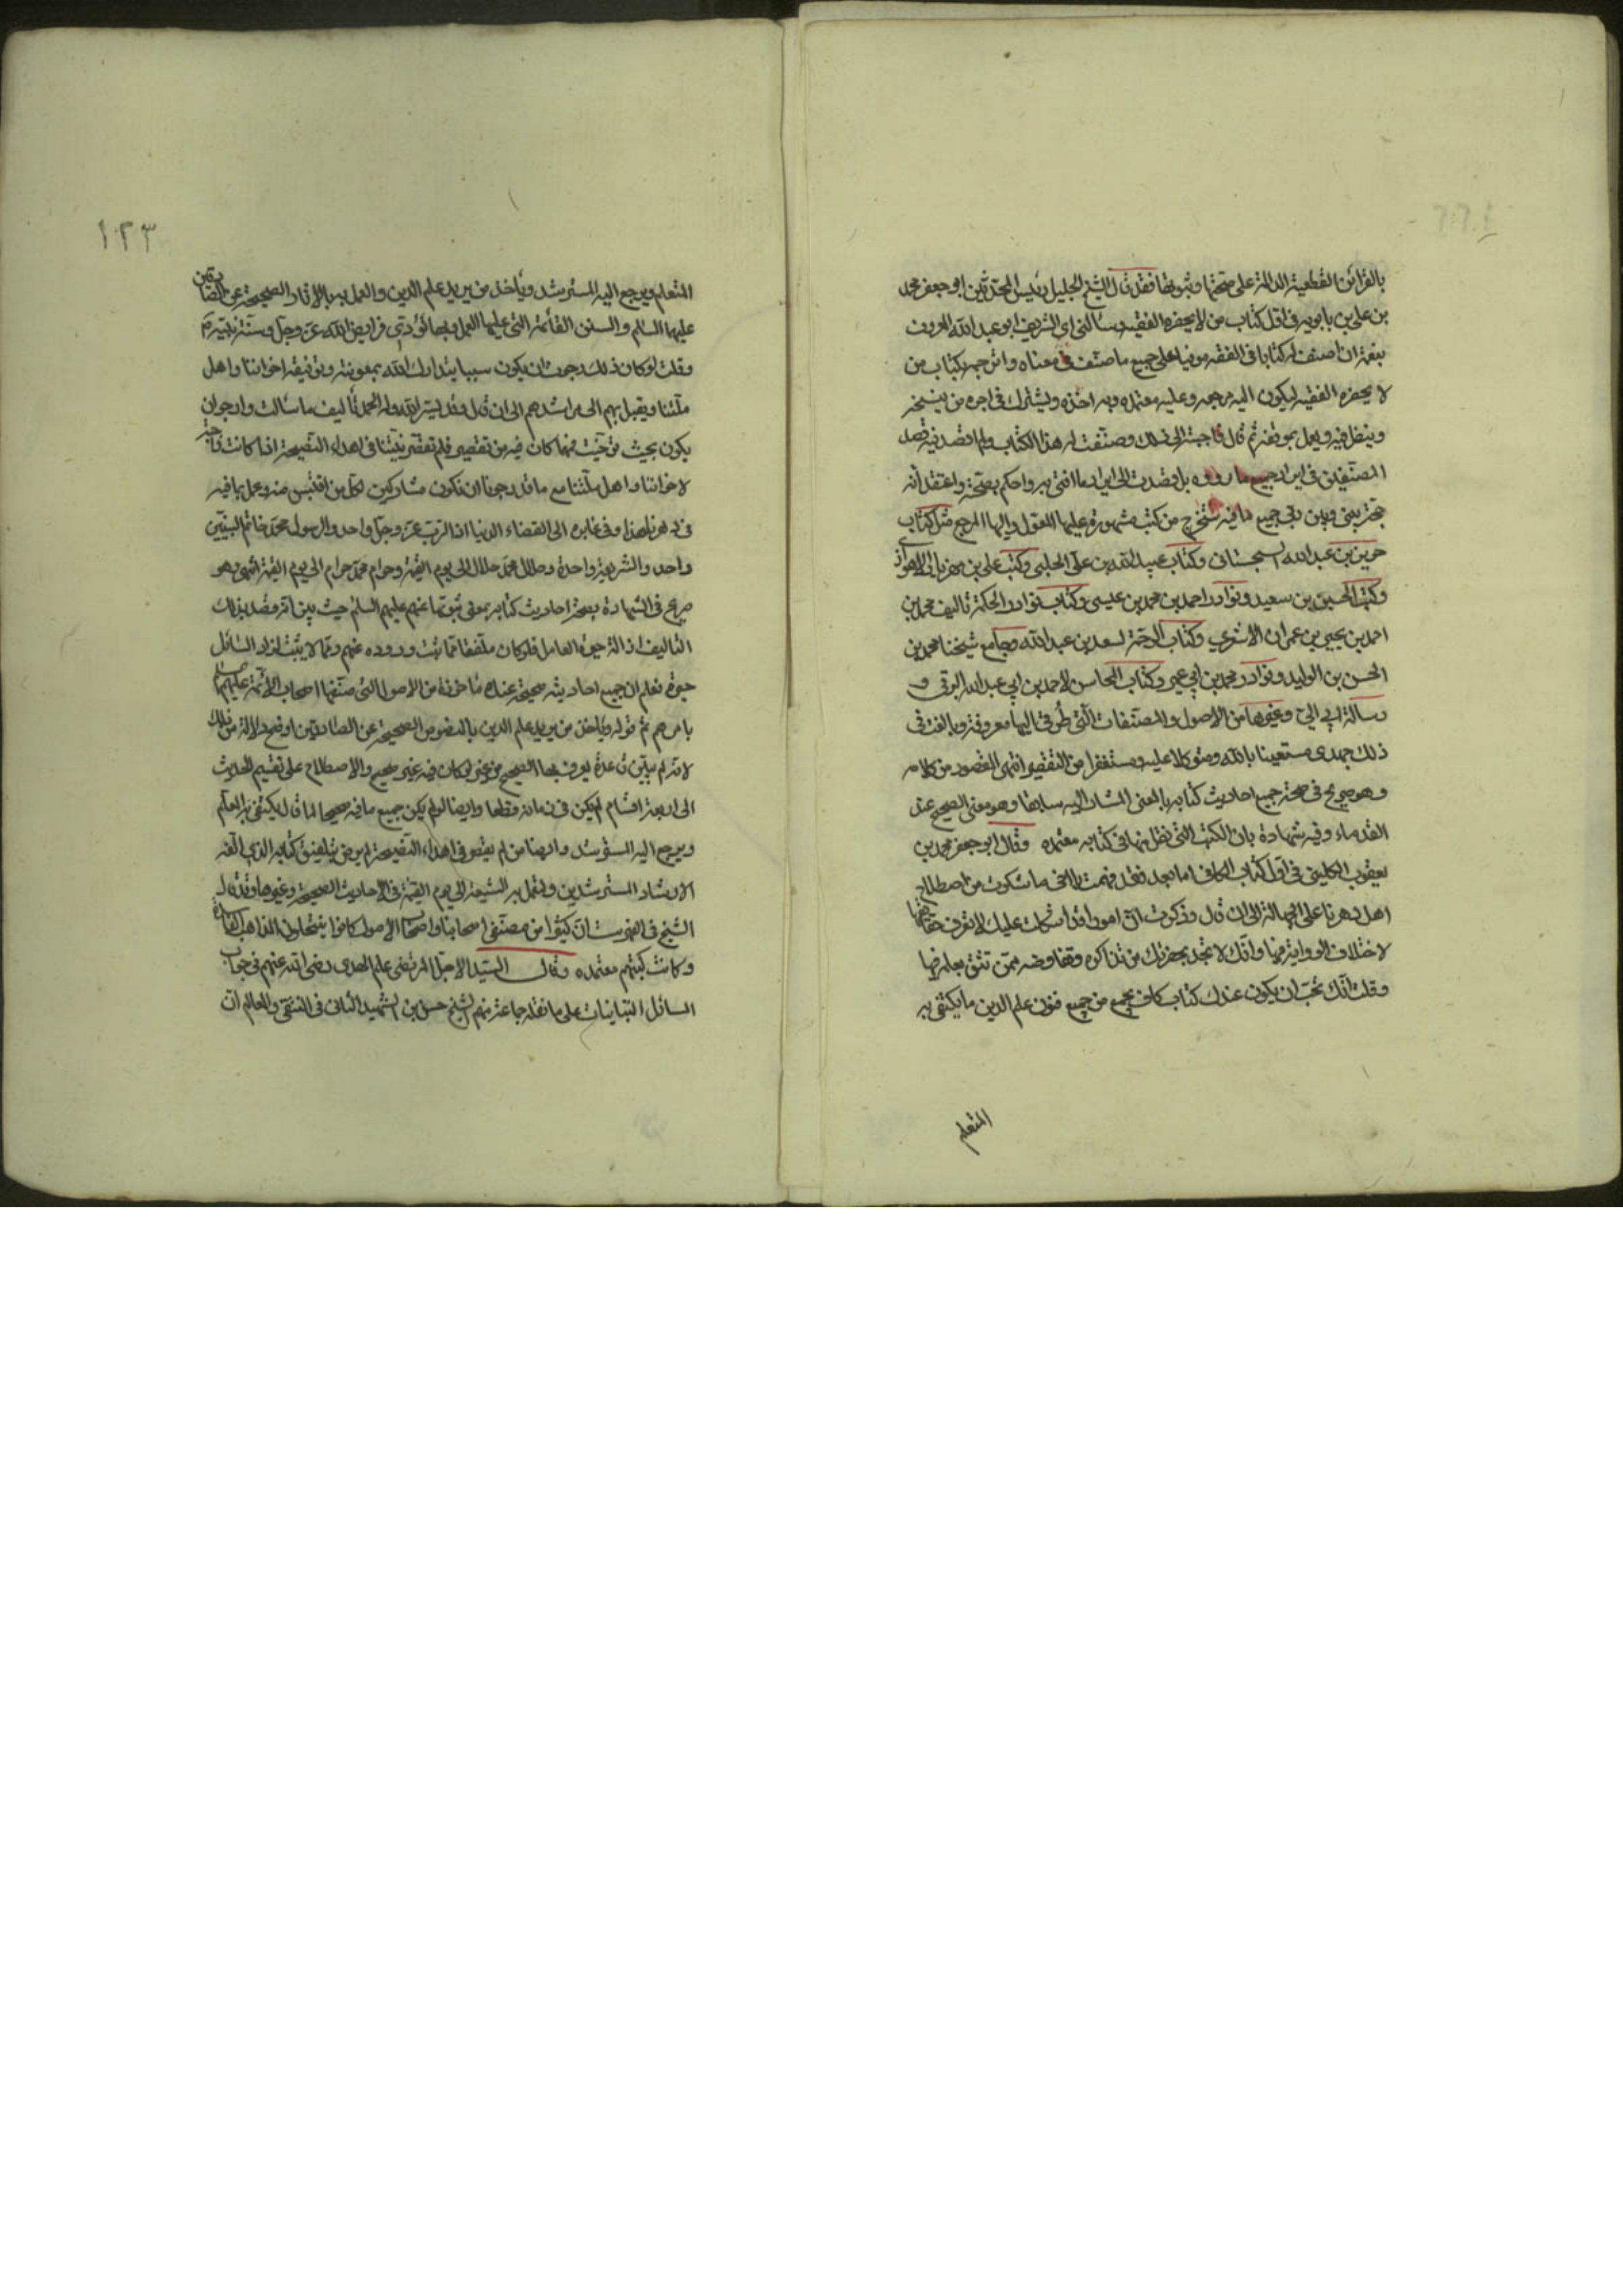 بالقرائن القطعية الدالة على صحتها وثبوتها فقد قال الشيخ الجليل رئيس المحدثين ابو جعفر محمد
بن علي بن بابويه في اول كتاب من لا يحضره الفقيه وسألني اي الشريف ابو عبد الله المعروف
بنعمة ان اصنف له كتابا في الفقه موفيا على جميع ما صنف في معناه واترجمه بكتاب من
لا يحضره الفقيه ليكون اليه مرجعه وعليه معتمده وبه اخذه ويشترك في اجره من ينسخه
وينظر فيه ويعمل بمودعه ثم قال فاجبته الى ذلك وصنفت له هذا الكتاب ولم اقصد فيه قصد
المصنفين في ايراد جميع ما رووه بل قصدت الى ايراد ما افتي به واحكم بصحته واعتقد انه
حجة بيني وبين ربي جميع ما فيه مستخرج من كتب مشهورة عليها المعول واليها المرجع مثل كتاب
حريز بن عبد الله السجستاني وكتاب عبيد الله بن علي الحلبي وكتب علي بن مهزيار الاهوازي
وكتب الحسين بن سعيد ونوادر احمد بن محمد بن عيسى وكتاب نوادر الحكمة تاليف محمد بن
احمد بن يحيى بن عمران الاشعري وكتاب الرحمة لسعد بن عبد الله وجامع شيخنا محمد بن
الحسن بن الوليد ونوادر محمد بن ابي عمير وكتاب المحاسن لاحمد بن ابي عبد الله البرقي و
رسالة ابي الي وغيرها من الاصول والمصنفات التي طرقي اليها معروفة وبالغت في
ذلك جهدي مستعينا بالله ومتوكلا عليه ومستغفرا من التقصير انتهى المقصود من كلامه
وهو صريح في صحة جميع احاديث كتابه بالمعنى المشار اليه سابقا وهو معنى الصحيح عند
القدماء وفيه شهادة بان الكتب التي نقل منها في كتابه معتمده وقال ابو جعفر محمد بن
يعقوب الكليني في اول كتاب الكافي اما بعد فقد فهمت يا اخي ما شكوت من اصطلاح
اهل دهرنا على الجهالة الى ان قال وذكرت ان امورا قد اشكلت عليك لا تعرف حقائقها
لاختلاف الرواية فيها وانك لا تجد بحضرتك من تذاكره وتفاوضه ممن تثق بعلمه فيها
وقلت انك تحب ان يكون عندك كتاب كاف يجمع من جميع فنون علم الدين ما يكتفي به
المتعلم
١٢٣
المتعلم ويرجع اليه المسترشد ويأخذ من يريد علم الدين والعمل به بالاثار الصحيحة عن الصادقين
عليهما السلام والسنن القائمة التي عليها العمل وبها تؤدى فرايض الله عز وجل وسنة نبيه
وقلت لو كان ذلك رجوت ان يكون سببا يتدارك الله بمعونته وتوفيقه اخواننا واهل
ملتنا ويقبل بهم الى مراشدهم الى ان قال وقد يسر الله وله الحمد تأليف ما سألت وارجو ان
يكون بحيث توخيت فمهما كان فيه من تقصير فلم تقصر نيتنا في اهداء النصيحة اذا كانت واجبة
لاخواننا واهل ملتنا مع ما قد رجونا ان نكون مشاركين لكل من اقتبس منه وعمل بما فيه
في دهرنا هذا وفي غابره الى انقضاء الدنيا اذ الرب عز وجل واحد والرسول محمد خاتم النبيين
واحد والشريعة واحدة وحلال محمد حلال الى يوم القيمة وحرام محمد حرام الى يوم القيمة انتهى وهو
صريح في الشهادة بصحة احاديث كتابه بمعنى ثبوتها عنهم عليهم السلم حيث بين انه قصد بذلك
التاليف ازالة حيرة السائل فلو كان ملفقا مما ثبت وروده عنهم ومما لا يثبت لزاد السائل
حيرة فعلم ان جميع احاديثه صحيحة عنده مأخوذة من الاصول التي صنفها اصحاب الائمة عليهم السلم
بامرهم ثم قوله ويأخذ من يريد علم الدين بالنصوص الصحيحة عن الصادقين اوضح دلالة من ذلك
لانه لم يبين قاعدة يعرف بها الصحيح من غيره لو كان فيه غير صحيح والاصطلاح على تقسيم الحديث
الى اربعة اقسام لم يكن في زمانه قطعا وايضا لو لم يكن جميع ما فيه صحيحا لما قال يكتفي به المتعلم
ويرجع اليه المسترشد وايضا من لم يقصر في اهداء النصيحة لم يرض بتلفيق كتابه الذي الفه
لارشاد المسترشدين وليعمل به الشيعة الى يوم القيمة في الاحاديث الصحيحة وغيرها وقد قال
الشيخ في الفهرست ان كثيرا من مصنفي اصحابنا واصحاب الاصول كانوا ينتحلون المذاهب الفاسدة
وكانت كتبهم معتمده وقال السيد الاجل المرتضى علم الهدى رضي الله عنهم في جواب
المسائل التبانيات على ما نقله جماعة منهم الشيخ حسن بن الشهيد الثاني في المنتقى والمعالم ان